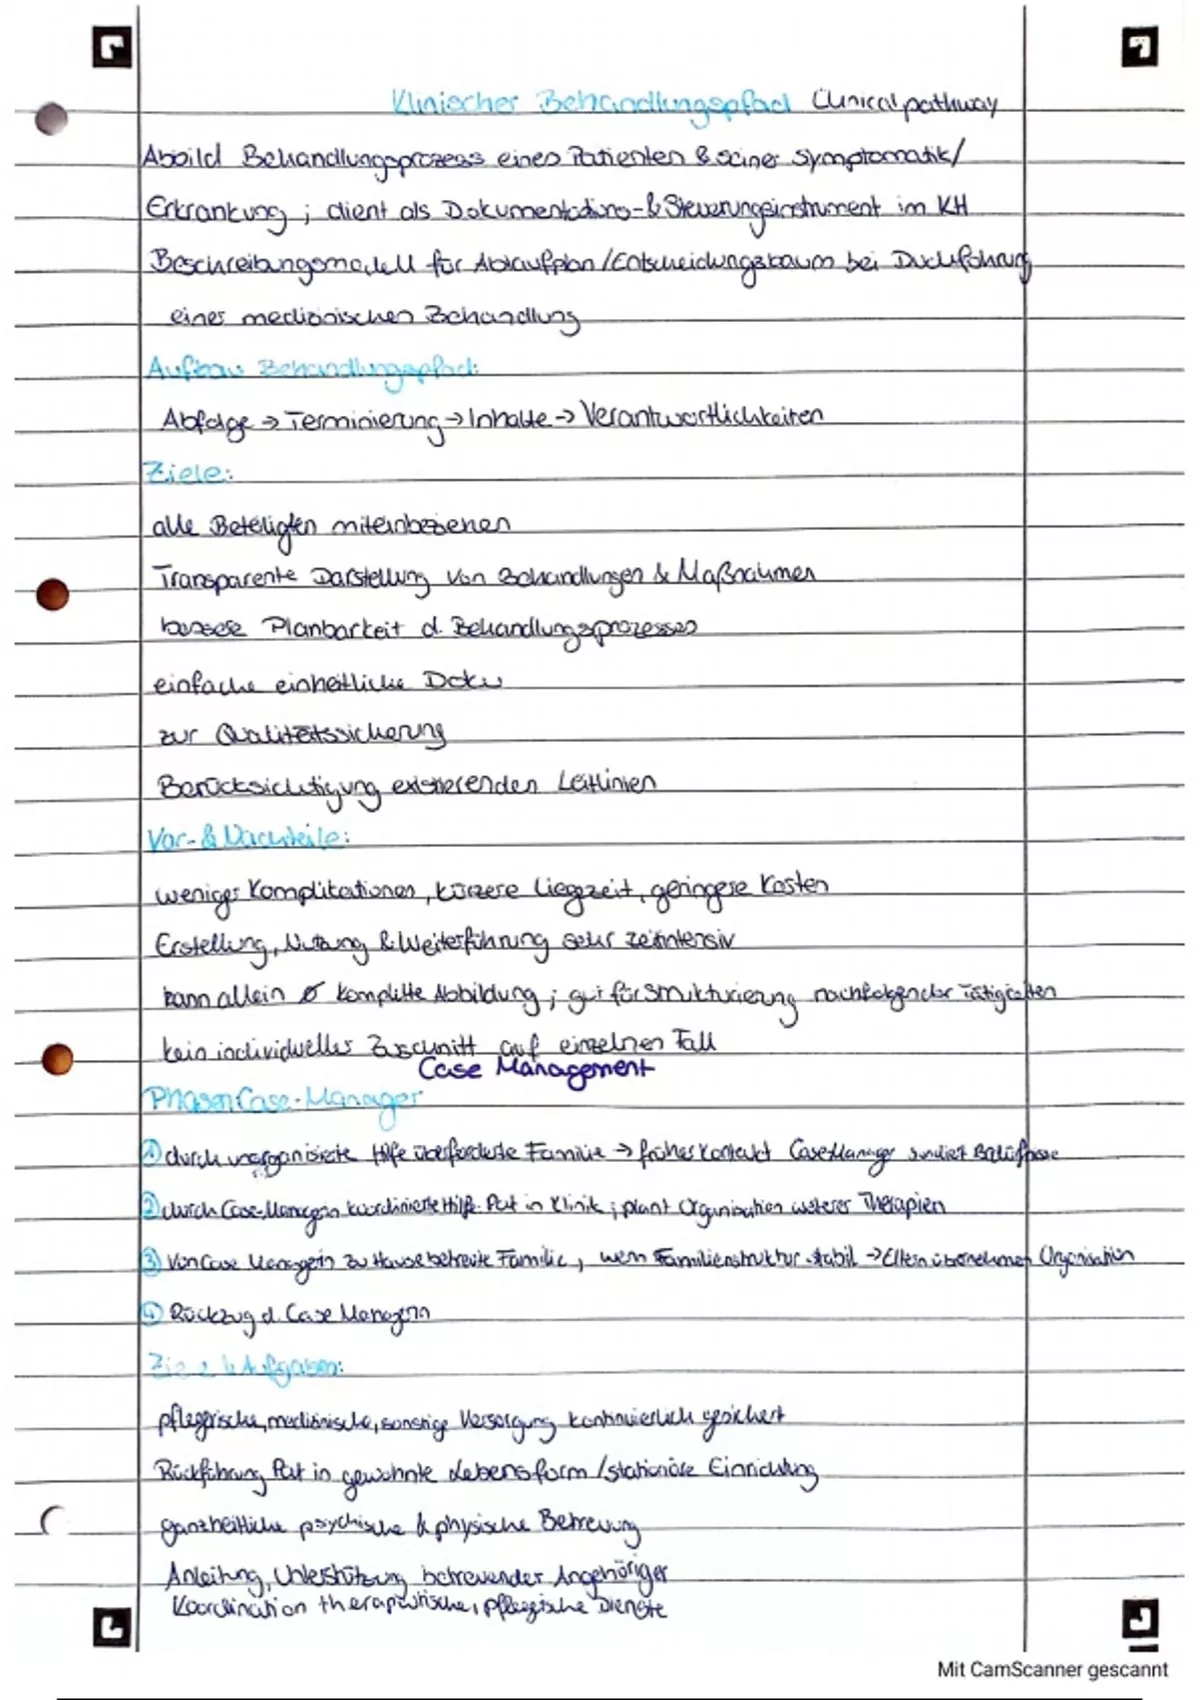 Klinischer Behandlungspfad Clinical pathway
Abbild Behandlungsprozess eines Patienten & seiner Symptomatik/
Erkrankung; dient als Dokumentations-& Steuerungsinstrument im KH
Beschreibungsmodell für Ablaufplan/Entscheidungsbaum bei Duchführung
einer medizinischen Behandlung
Aufbau Behandlungspfad:
Abfolge → Terminierung → Inhalte → Verantwortlichkeiten
Ziele:
alle Beteiligten miteinbeziehen
Transparente Darstellung von Behandlungen & Maßnahmen
bessere Planbarkeit d. Behandlungsprozesses
einfache einheitliche Doku
zur Qualitätssicherung
Berücksichtigung existierenden Leitlinien
Vor- & Nachteile:
weniger Komplikationen, kürzere Liegezeit, geringere Kosten
Erstellung, Nutzung & Weiterführung sehr zeitintensiv
kann allein komplette Abbildung; gut für Strukturierung nachfolgender Tätigkeiten
kein individueller Zuschnitt auf einzelnen Fall
Case Management
Phasen Case-Manager
① durch unorganisierte Hilfe überforderte Familie → früher Kontakt CaseManager
② durch Case-Managerin koordinierte Hilfe. Pat in Klinik; plant Organisation weiterer Therapien
③ Von Case Managerin zu Hause betreute Familie, wenn Familienstruktur stabil → Eltern übernehmen Organisation
④ Rückzug d. Case Managerin
Ziele & Aufgaben:
pflegerische, medizinische, sonstige Versorgung kontinuierlich gesichert
Rückführung Pat in gewohnte Lebensform/stationäre Einrichtung
ganzheitliche psychische & physische Betreuung
Anleitung, Unterstützung betreuender Angehöriger
Koordination therapeutische, pflegische Dienste
Mit CamScanner gescannt